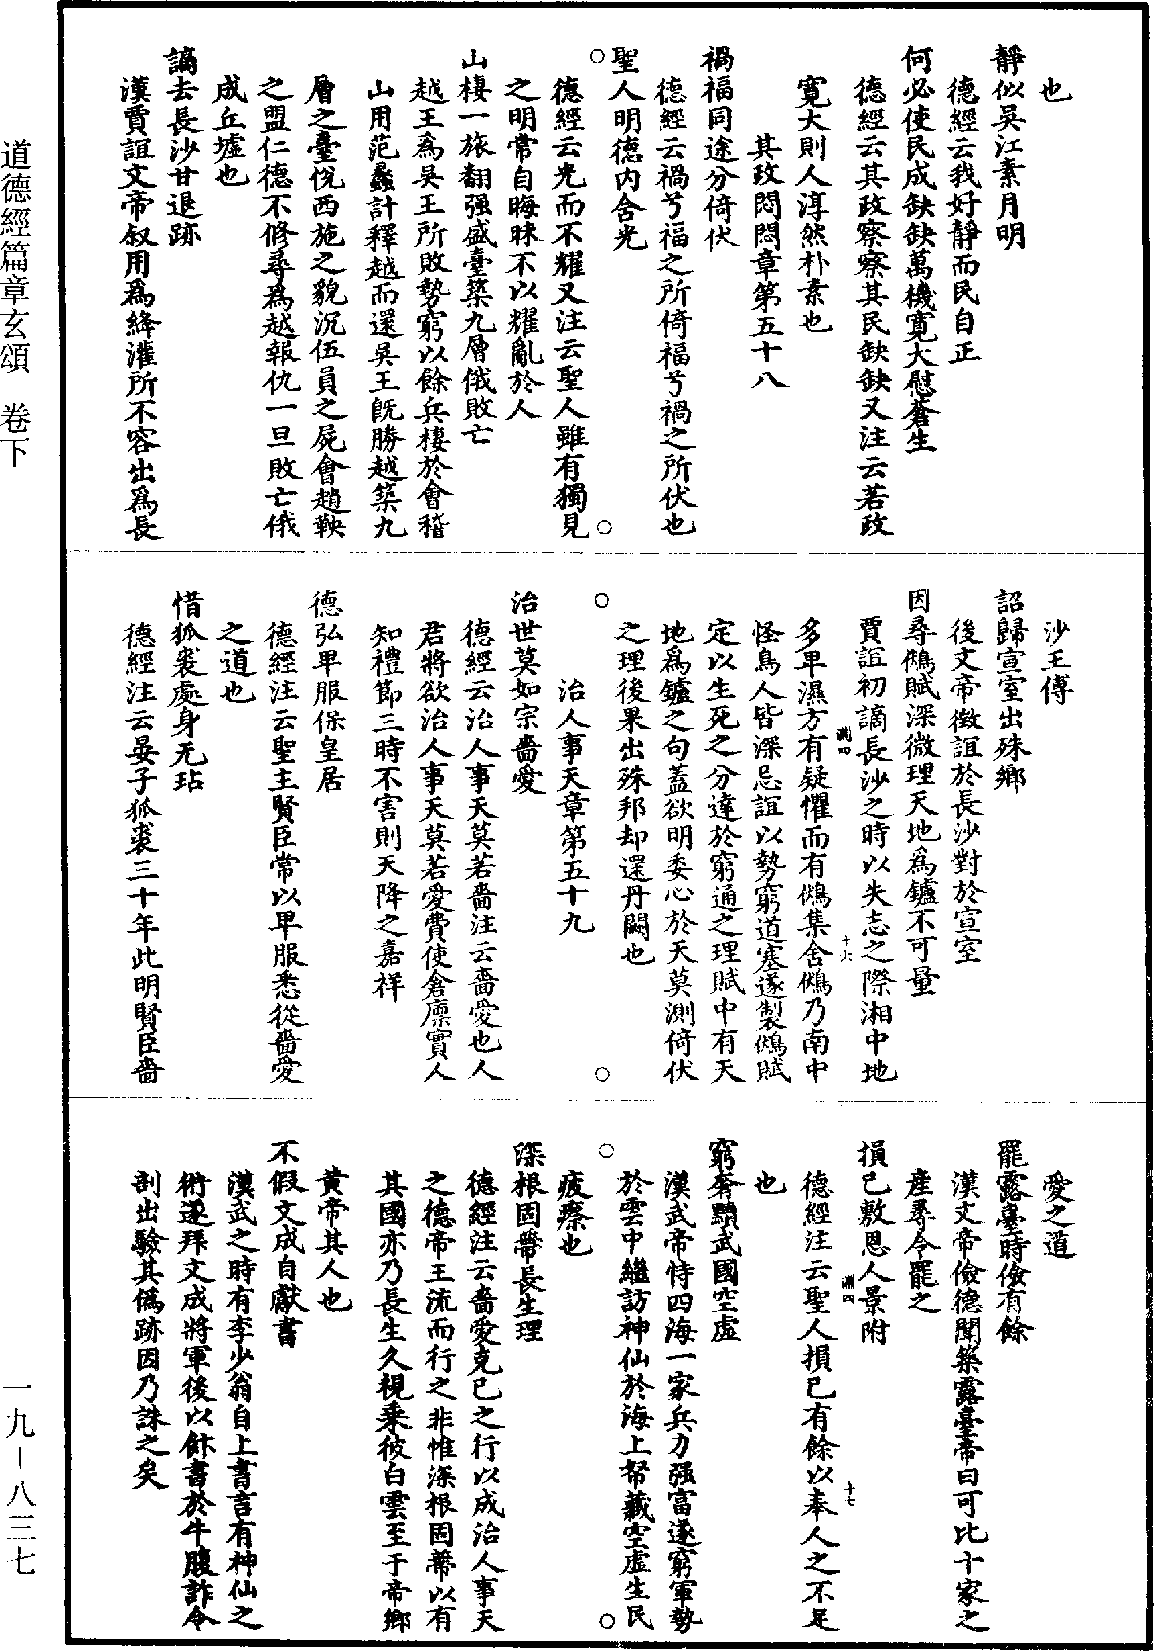 也
靜似吳江素月明
德經云我好靜而民自正
何必使民成缺缺萬機寬大慰蒼生
德經云其政察察其民缺缺又注云若政
寬大則人淳然朴素也
其政悶悶章第五十八
禍福同途分倚伏
德經云禍兮福之所倚福兮禍之所伏也
聖人明德內含光
德經云光而不耀又注云聖人雖有獨見
之明常自晦昧不以耀亂於人
山棲一旅翻强盛臺築九層俄敗亡
越王為吳王所敗勢窮以餘兵棲於會稽
山用范蠡計釋越而還吳王既勝越築九
層之臺悅西施之貌沉伍員之屍會趙鞅
之盟仁德不修尋為越報仇一旦敗亡俄
成丘墟也
謫去長沙甘退跡
漢賈誼文帝叙用為絳灌所不容出為長
沙王傅
詔歸宣室出殊鄉
後文帝徵誼於長沙對於宣室
因尋鵩賦深微理天地為鑪不可量
賈誼初謫長沙之時以失志之際湘中地
多卑濕方有疑懼而有鵩集舍鵩乃南中
怪鳥人皆深忌誼以勢窮道塞遂製鵩賦
定以生死之分達於窮通之理賦中有天
地為鑪之句蓋欲明委心於天莫測倚伏
之理後果出殊邦却還丹闕也
治人事天章第五十九
治世莫如宗嗇愛
德經云治人事天莫若嗇注云嗇愛也人
君將欲治人事天莫若愛費使倉廩實人
知禮節三時不害則天降之嘉祥
德弘卑服保皇居
德經注云聖主賢臣常以卑服悉從嗇愛
之道也
惜狐裘處身无玷
德經注云晏子狐裘三十年此明賢臣嗇
愛之道
罷露臺時儉有餘
漢文帝儉德聞築露臺帝曰可比十家之
產尋令罷之
損己敷恩人景附
德經注云聖人損己有餘以奉人之不足
也
窮奢黷武國空虛
漢武帝恃四海一家兵力强富遂窮軍勢
於雲中繼訪神仙於海上帑藏空虛生民
疲瘵也
深根固蔕長生理
德經注云嗇愛克己之行以成治人事天
之德帝王流而行之非惟深根固蔕以有
其國亦乃長生久視乘彼白雲至于帝鄉
黃帝其人也
不假文成自獻書
漢武之時有李少翁自上書言有神仙之
術遂拜文成將軍後以飰書於牛腹詐令
剖出驗其偽跡因乃誅之矣
淵四
十六
淵四
十七
道德經篇章玄頌 卷下
一九—八三七